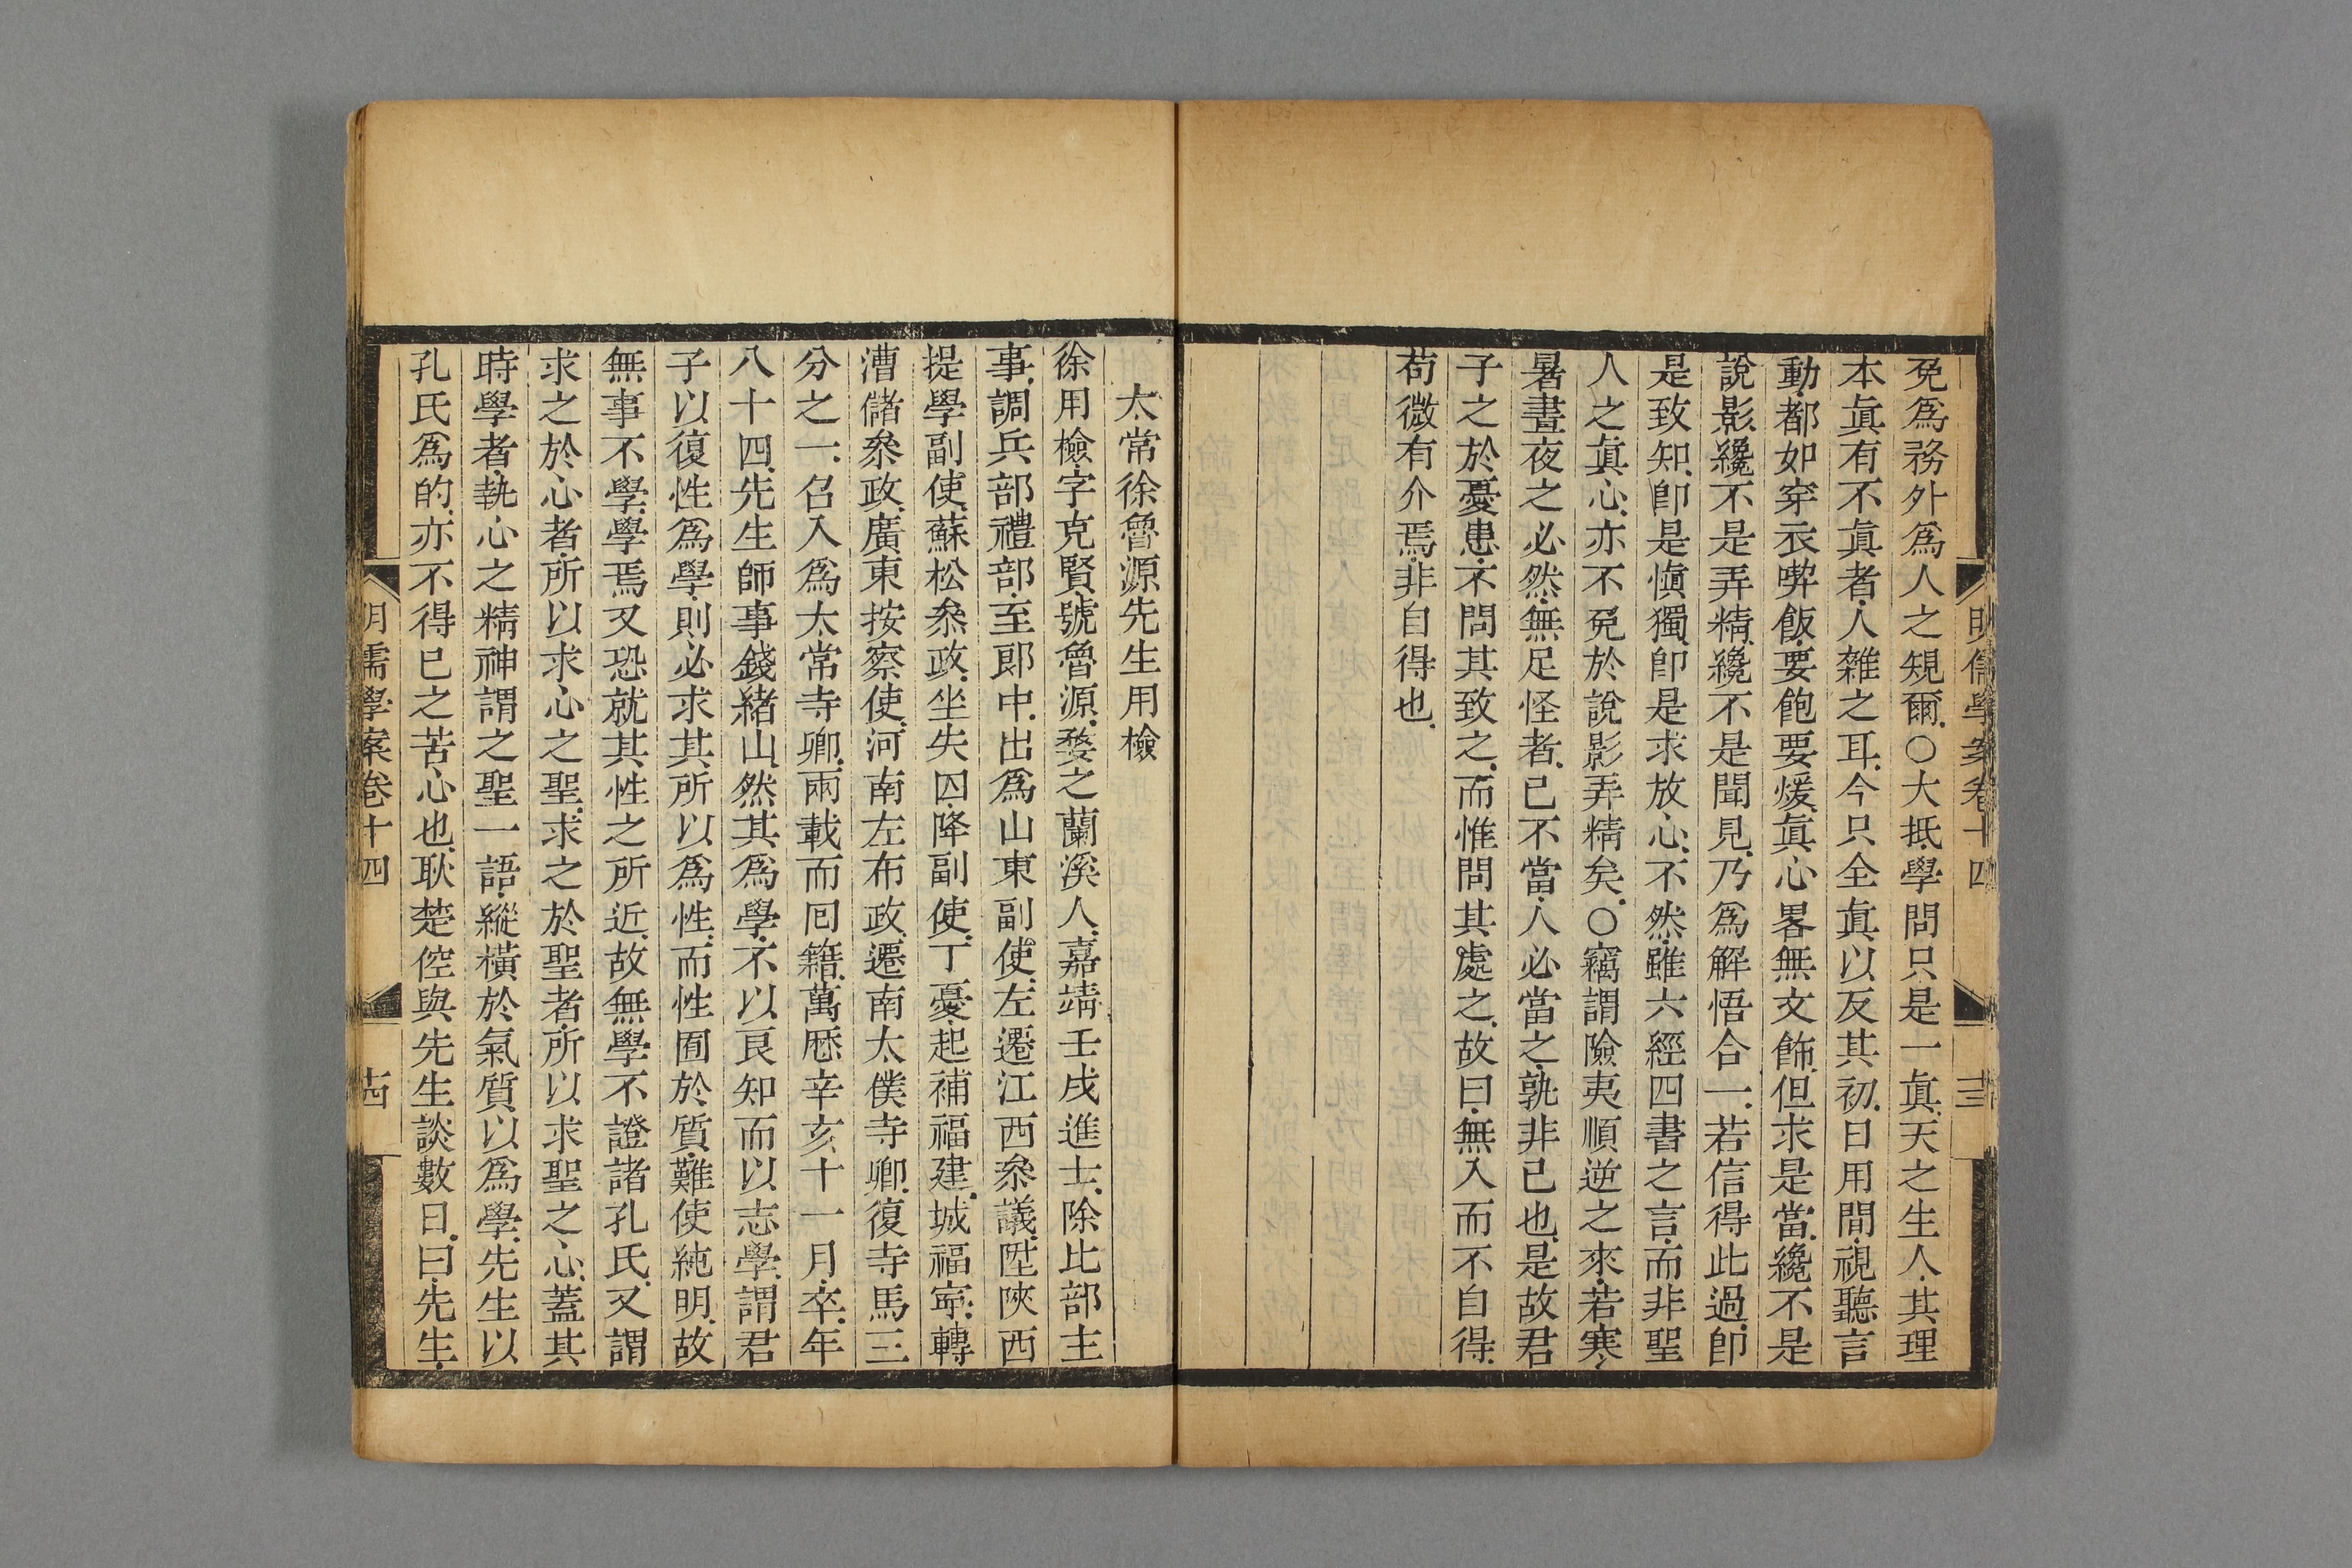 明儒學案卷十四
十三
免爲務外爲人之規爾○大抵學問只是一眞天之生人其理
本眞有不眞者人雜之耳今只全眞以反其初日用間視聽言
動都如穿衣喫飯要飽要煖眞心畧無文飾但求是當纔不是
說影纔不是弄精纔不是聞見乃爲解悟合一若信得此過卽
是致知卽是愼獨卽是求放心不然雖六經四書之言而非聖
人之眞心亦不免於說影弄精矣○竊謂險夷順逆之來若寒
暑晝夜之必然無足怪者已不當人必當之孰非已也是故君
子之於憂患不問其致之而惟問其處之故曰無入而不自得
苟微有介焉非自得也
太常徐魯源先生用檢
徐用檢字克賢號魯源婺之蘭溪人嘉靖壬戌進士除比部主
事調兵部禮部至郞中出爲山東副使左遷江西叅議陞陝西
提學副使蘇松叅政坐失囚降副使丁憂起補福建城福寧轉
漕儲叅政廣東按察使河南左布政遷南太僕寺卿復寺馬三
分之一召入爲太常寺卿兩載而囘籍萬厯辛亥十一月卒年
八十四先生師事錢緒山然其爲學不以良知而以志學謂君
子以復性爲學則必求其所以爲性而性囿於質難使純明故
無事不學學焉又恐就其性之所近故無學不證諸孔氏又謂
求之於心者所以求心之聖求之於聖者所以求聖之心蓋其
時學者執心之精神謂之聖一語縱橫於氣質以爲學先生以
孔氏爲的亦不得巳之苦心也耿楚倥與先生談數日曰先生
明儒學案卷十四
十四